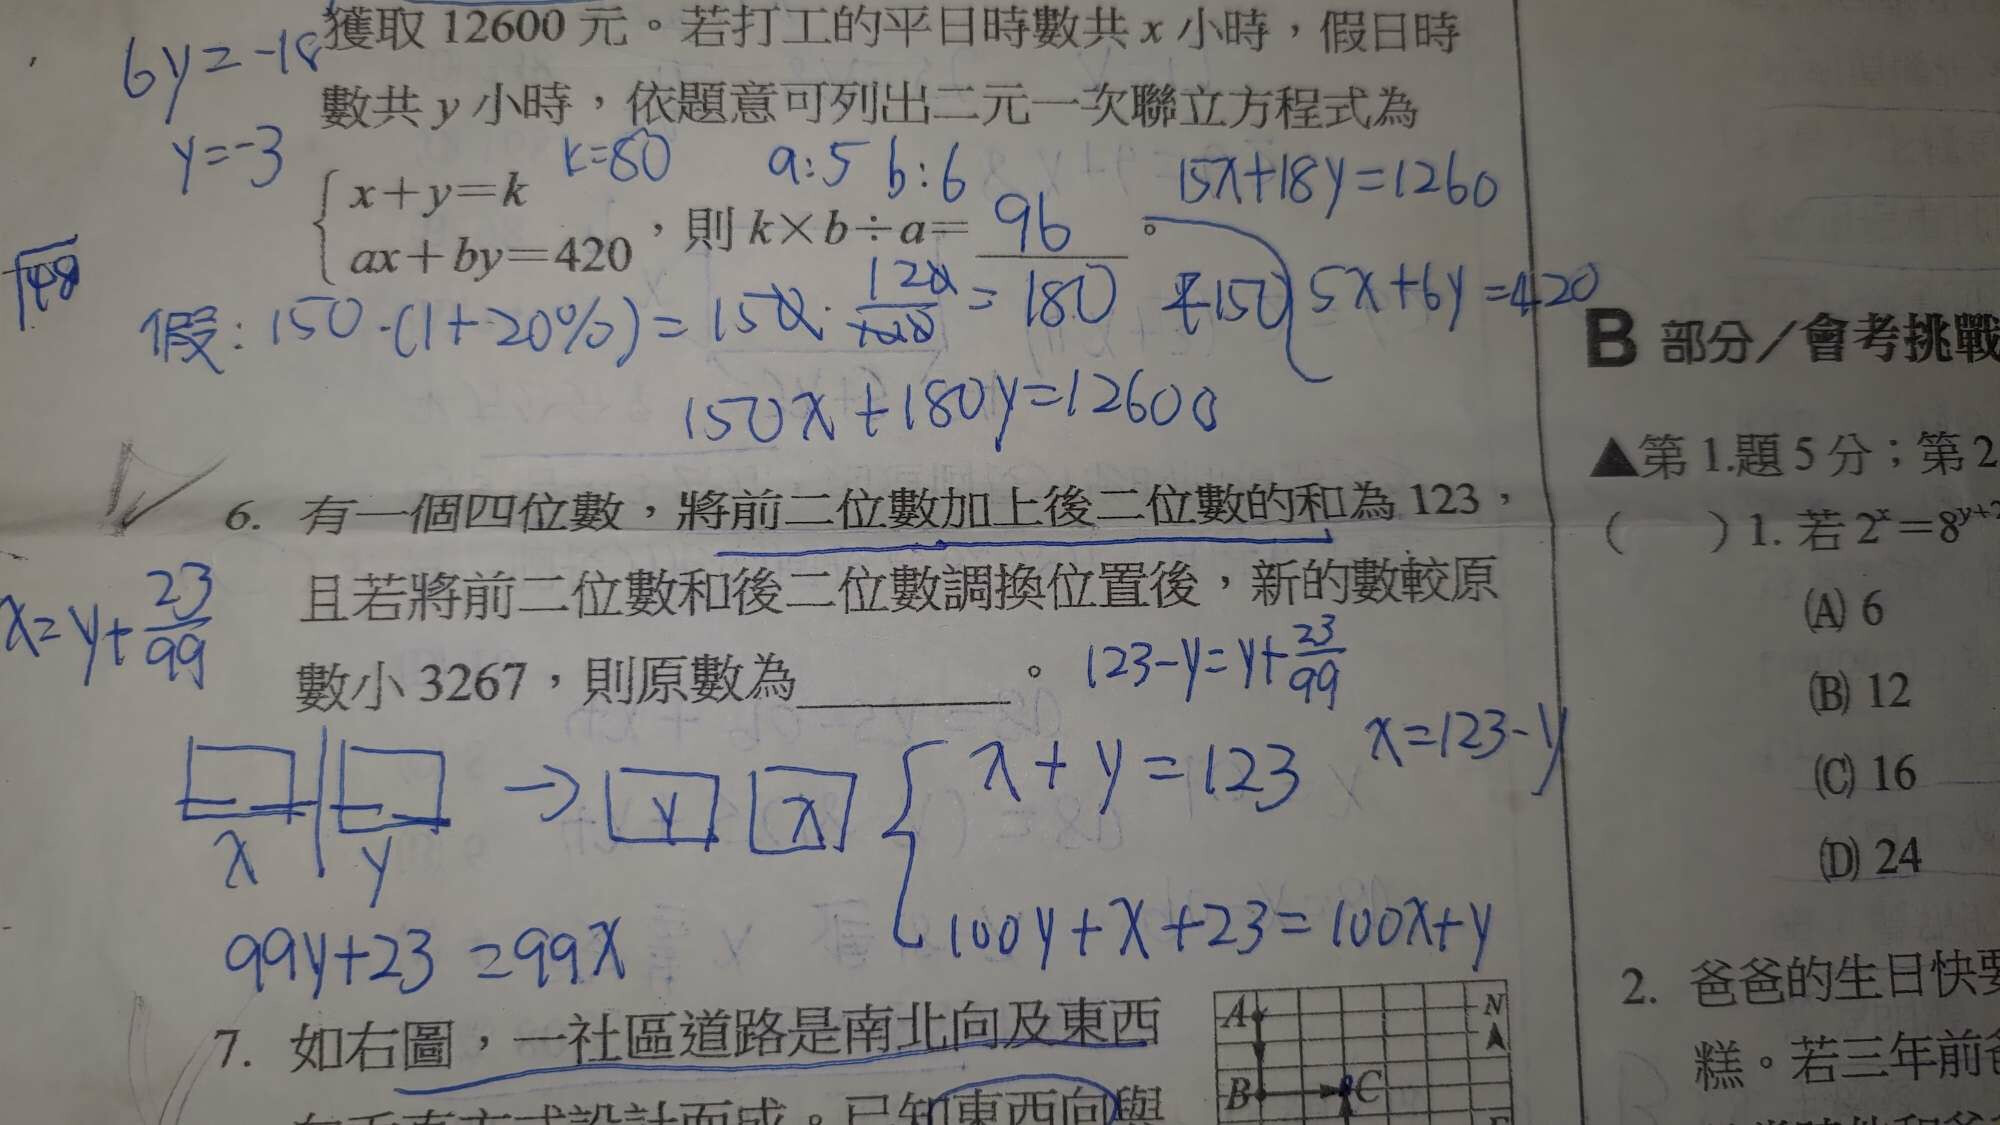 獲取 12600 元。若打工的平日時數共 x 小時，假日時
數共 y 小時，依題意可列出二元一次聯立方程式為
x+y=k
ax+by=420
，則 k×b÷a= 96 。
6y=-18
y=-3
k=80
a:5 b:6
15x+18y=1260
5x+6y=420
假: 150·(1+20%)=150·120/100=180
150x+180y=12600
6. 有一個四位數，將前二位數加上後二位數的和為 123，
且若將前二位數和後二位數調換位置後，新的數較原
數小 3267，則原數為 。
x=y+23/99
123-y=y+23/99
x=123-y
x y → y x
x+y=123
100y+x+23=100x+y
99y+23=99x
7. 如右圖，一社區道路是南北向及東西
A
N
B
C
B 部分／會考挑戰
▲第 1.題 5 分；第 2
（ ）1. 若 2ˣ=8ʸ⁺²
(A) 6
(B) 12
(C) 16
(D) 24
2. 爸爸的生日快要
糕。若三年前爸